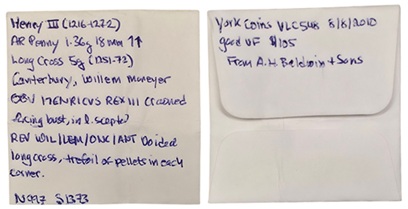 Henry III (1216-1272)
AR Penny 1.36g 18mm 1↑
Long Cross 5g (1251-72)
Canterbury, Willem Moneyer
OBV HENRICVS REX III Crowned
facing bust, in R. scepter
REV WIL/LEM/ONK/ANT Voided
long cross, trefoil of pellets in each
corner.
N997 S1373
York Coins VLC548 8/8/2010
good VF $105
From A.H. Baldwin + Sons